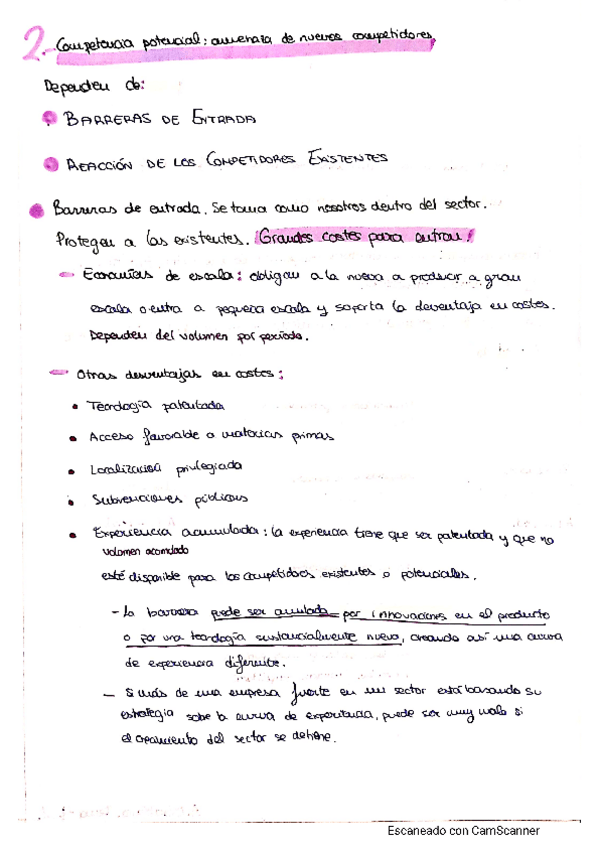 2. Competencia potencial: amenaza de nuevos competidores
Dependen de:
BARRERAS DE ENTRADA
REACCIÓN DE LOS COMPETIDORES EXISTENTES
Barreras de entrada. Se toma como nosotros dentro del sector.
Protegen a las existentes. ¡Grandes costes para entrar!
Economías de escala: obligan a la nueva a producir a gran
escala o entra a pequeña escala y soporta la deventaja en costes.
Dependen del volumen por período.
Otras desventajas en costes:
• Tecnología patentada
• Acceso favorable a materias primas
• Localización privilegiada
• Subvenciones públicas
• Experiencia acumulada: la experiencia tiene que ser patentada y que no
volumen acumulado
esté disponible para los competidores existentes o potenciales.
- La barrera puede ser anulada por innovaciones en el producto
o por una tecnología sustancialmente nueva, creando así una curva
de experiencia diferente.
- Si más de una empresa fuerte en un sector está basando su
estrategia sobe la curva de experiencia, puede ser muy malo si
el crecimiento del sector se detiene.
Escaneado con CamScanner